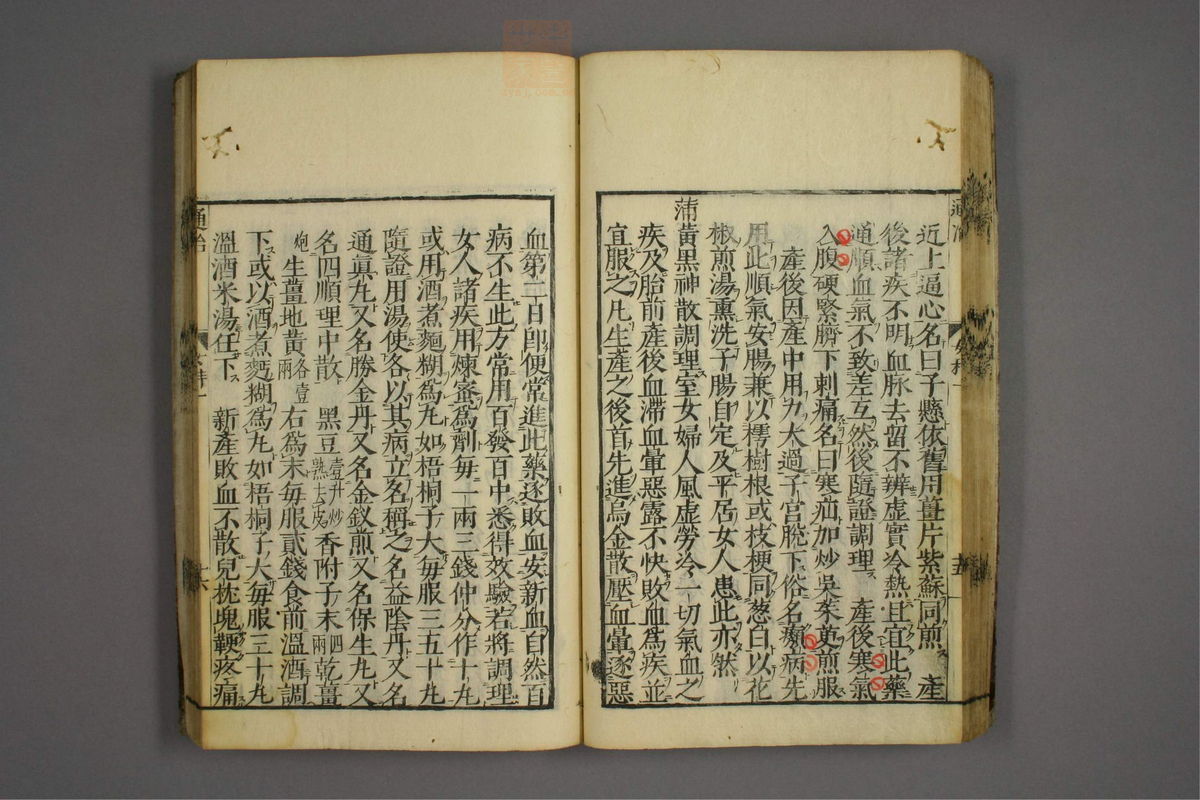 近上逼心名曰子懸依舊用薑片紫蘇同煎 產
後諸疾不明血脉去留不辨虛實冷熱且宜此藥
通順血氣不致差互然後隨證調理 產後寒氣
入腹硬緊臍下刺痛名曰寒疝加炒吳茱萸煎服
產後因產中用力太過子宮脫下俗名㿗病先
用此順氣安腸兼以樗樹根或枝梗同葱白以花
椒煎湯熏洗子腸自定及平居女人患此亦然
蒲黃黑神散調理室女婦人風虛勞冷一切氣血之
疾及胎前產後血滯血暈惡露不快敗血為疾並
宜服之凡生產之後首先進烏金散壓血暈逐惡
血第二日即便常進此藥逐敗血安新血自然百
病不生此方常用百發百中悉得效驗若將調理
女人諸疾用煉蜜為劑每一兩三錢仲分作十丸
或用酒煮麵糊為丸如梧桐子大每服三五十丸
隨證用湯使各以其病立名稱之名益陰丹又名
通真丸又名勝金丹又名金釵煎又名保生丸又
名四順理中散 黑豆壹升炒熟去皮香附子末四兩乾薑
炮生薑地黃各壹兩右為末每服貳錢食前溫酒調
下或以酒煮麪糊為丸如梧桐子大每服三十丸
溫酒米湯任下 新產敗血不散兒枕塊鞕疼痛